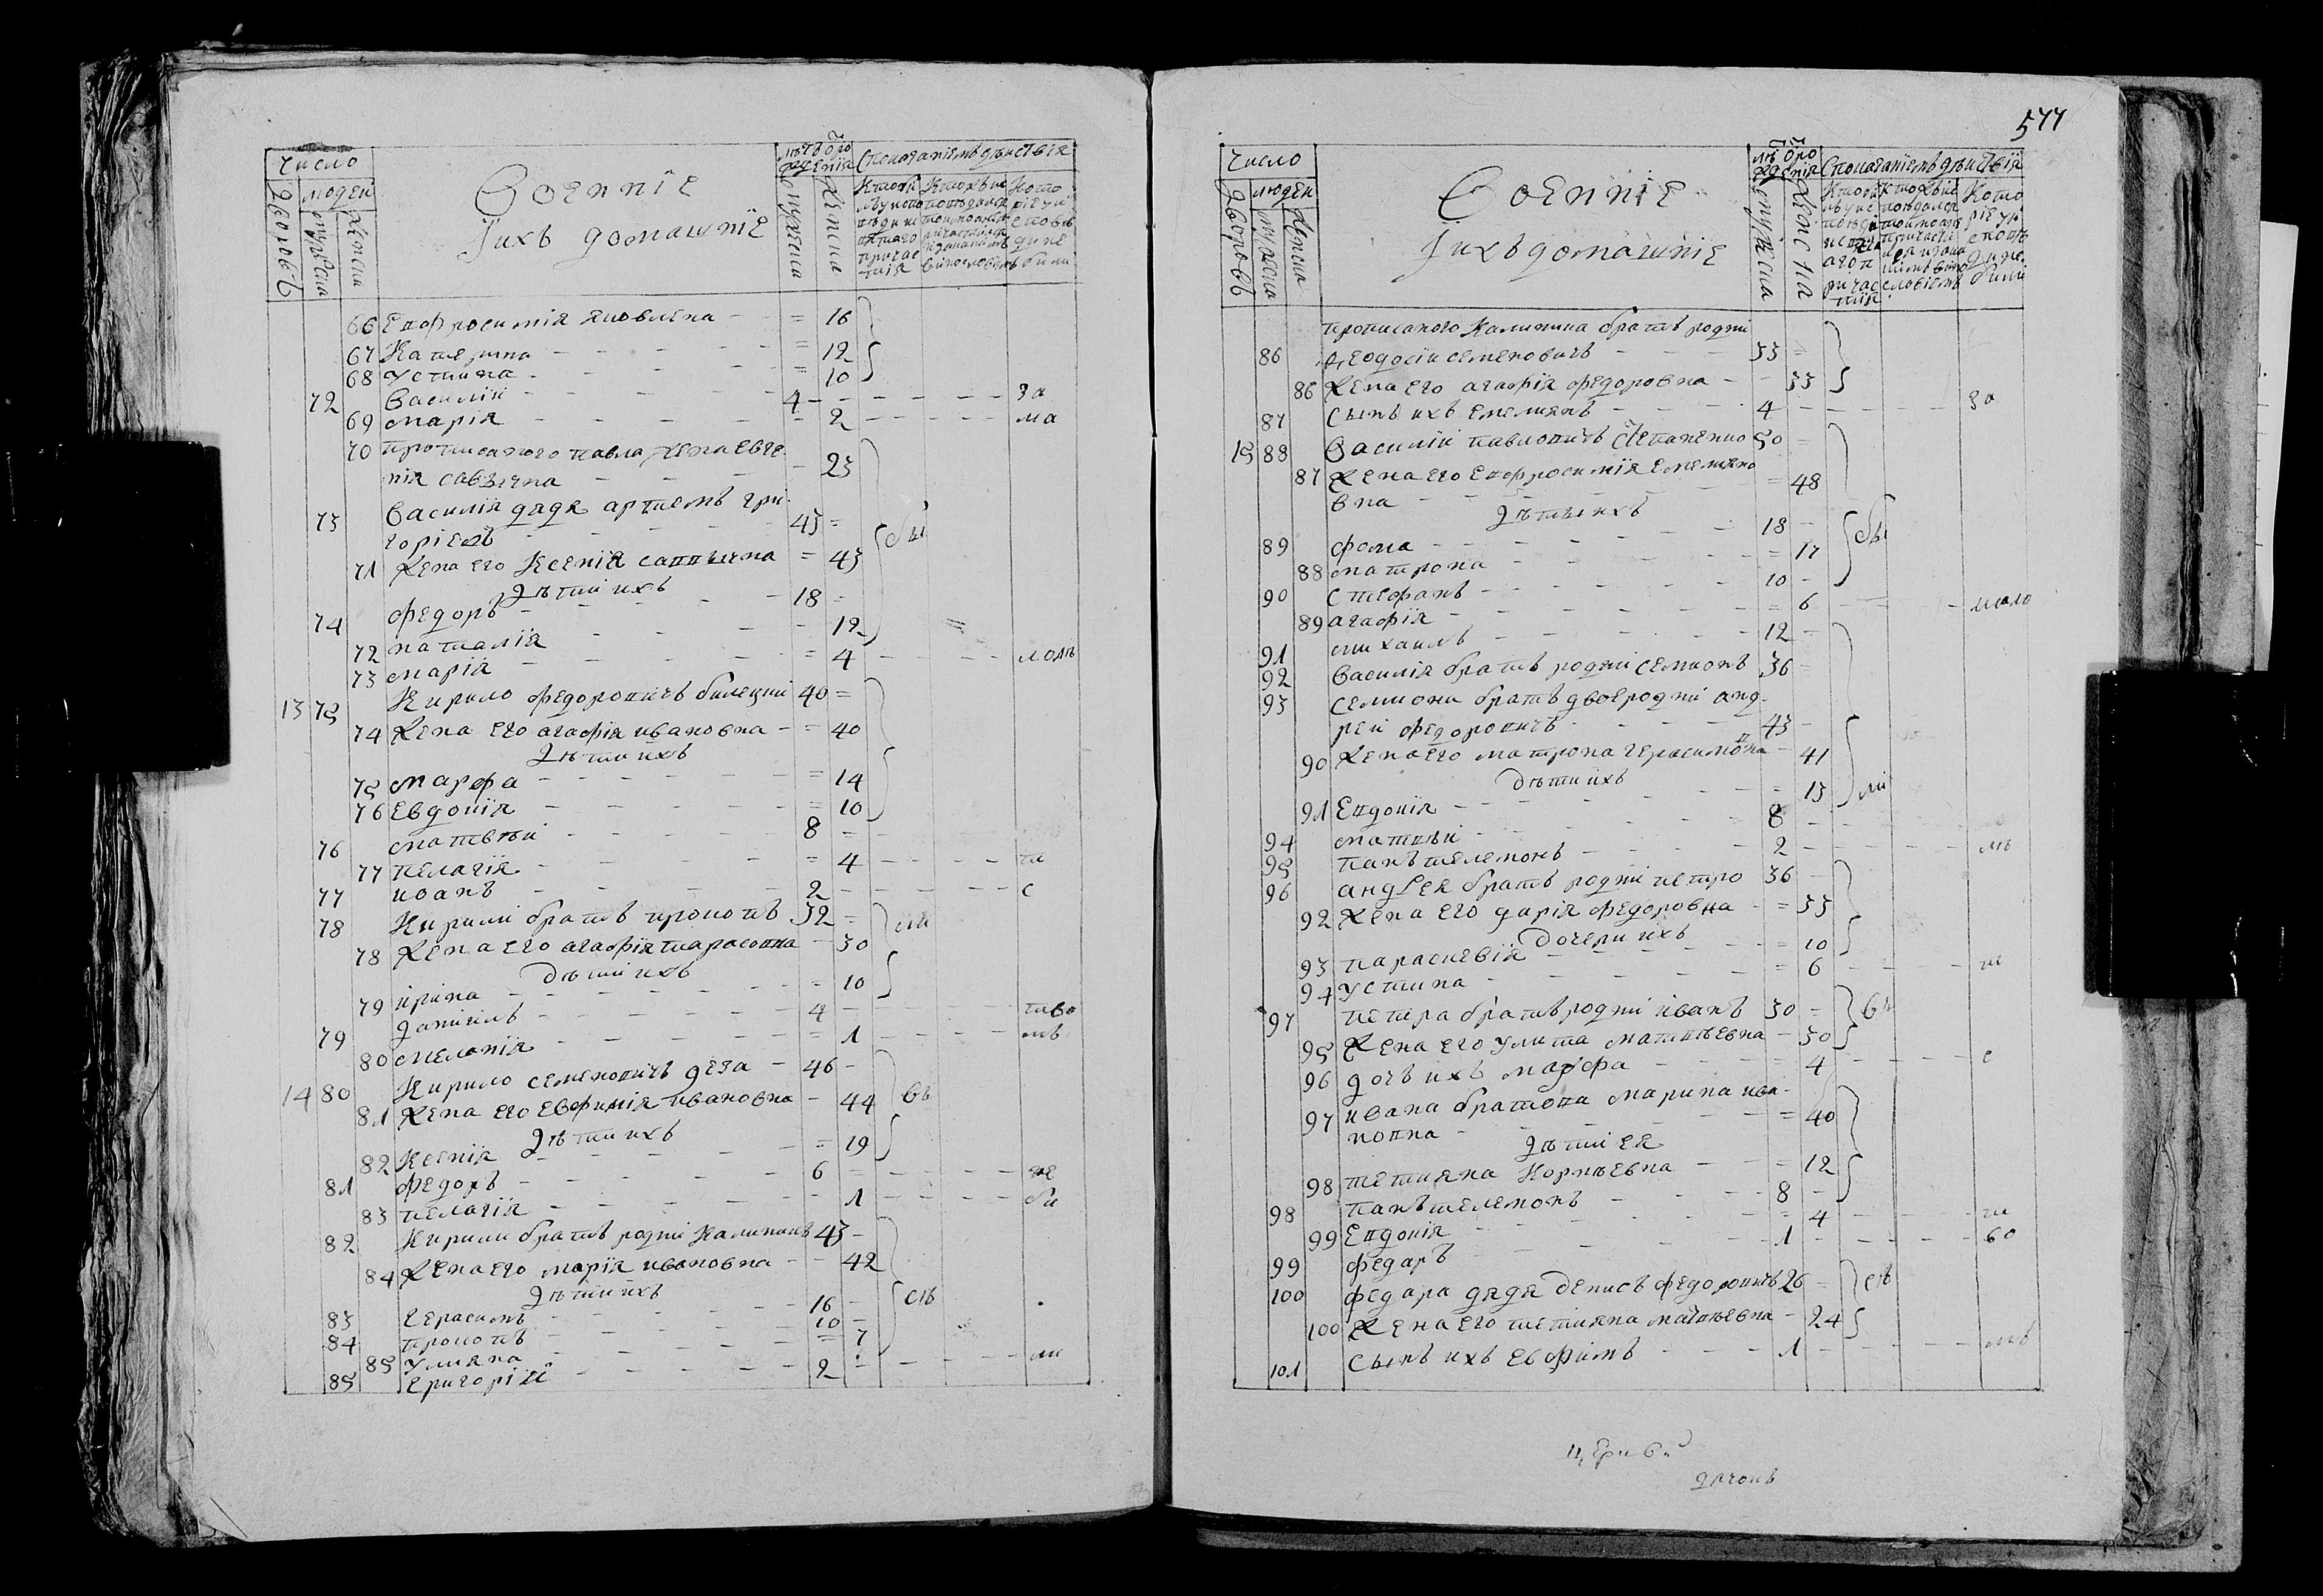 число
людеи
дворовъ
мужеска
женска
Военніе
Іихъ домашніе
мужеска
женска
66 Епфросимія яковлева - - = 16
67 Катерина - - = 12
68 Устина - - = 10
72 Василіи - - 4 - - за
69 марія - - 2 - - ма
70 прописаного павла жена евге
нія савична - - 23
73 Василія дядя артемъ гри
горіевъ - 43 =
бы
71 Жена его Ксенія саввична = 43
Дѣти ихъ
74 федоръ - - 18 -
72 наталія - - 12
73 марія - - = 4 - - лолѣ
13 75 Кирило федоровичъ билецкии 40 =
74 Жена его агафія ивановна - = 40
Дѣти ихъ
75 марфа - - = 14
76 Евдокія - - = 10
76 матвѣи - - 8 =
77 пелагія - - = 4 - - т
77 иванъ - - 2 - - с
78 Кирили братъ прокопъ 32 =
78 Жена его агафія тарасовна - 30
Дѣти ихъ
79 ирина - - = 10
79 даніилъ - - 4 - тво
80 меланія - - = 1 - - мъ
14 80 Кирило семеновичъ деза - 46 -
81 Жена его евфимія ивановна - 44 } въ
Дѣти ихъ
82 Ксенія - - = 19
81 федоръ - - 6 = - - не
83 пелагія - - 1 - - би
82 Кирили братъ родни калиникъ 43 -
84 Жена его марія ивановна - - 42
Дѣти ихъ
83 Герасимъ - - 16 - } спъ
84 прокопъ - - 10 -
85 Улияна - - = 7
85 Григоріи - - 2 - - ли
577
число
людеи
дворовъ
мужеска
женска
Военніе
Іихъ домашніе
мужеска
женска
прописаного Калиника братъ родни
86 Феодосіи семеновичъ - - 33 =
86 Жена его агафія федоровна - - 33
87 сынъ ихъ емелиянъ - - 4 - - за
15 88 Василіи павловичъ степаненко 50 =
87 Жена его Епфросимія емелияно
вна - - = 48
Дѣти ихъ
89 фома - - 18 -
бы
88 матрона - - = 17
90 стефанъ - - 10 -
89 агафія - - = 6 - - мало
91 михаилъ - - 12 -
92 Василія братъ родни семионъ 36 =
93 семиони братъ двоеродни анд
реи федоровичъ - - 43 -
90 Жена его матрона герасимовна - 41
Дѣти ихъ
91 Евдокія - - = 13 } ли
94 матвѣи - - 8 -
95 панътелемонъ - - 2 - - мъ
96 андрея братъ родни петро 36 -
92 Жена его дарія федоровна - = 33
Дочери ихъ
93 параскевія - - = 10
94 устина - - = 6 - -
97 петра братъ родни иванъ 30 -
95 Жена его улита матвѣевна - 30
96 дочъ ихъ марфа - - 4 - - с
97 ивана братова марина ива
новна - - = 40
Дѣти ея
98 тетияна Корнѣевна - - = 12
98 панътелемонъ - - 8 -
99 Евдокія - - 4 - - т
99 федаръ - - 1 - - во
100 федара дядя денисъ федоровичъ 26 = } спъ
100 Жена его тетияна матвѣевна - 24
101 сынъ ихъ евфимъ - - 1 - - мъ
дячокъ